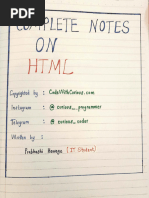 COMPLETE NOTES
ON
HTML
Copyrighted by : CodeWithCurious.com
Instagram : @ curious_.programmer
Telegram : @ curious_coder
Written by :
Prathmesh (IT Student)